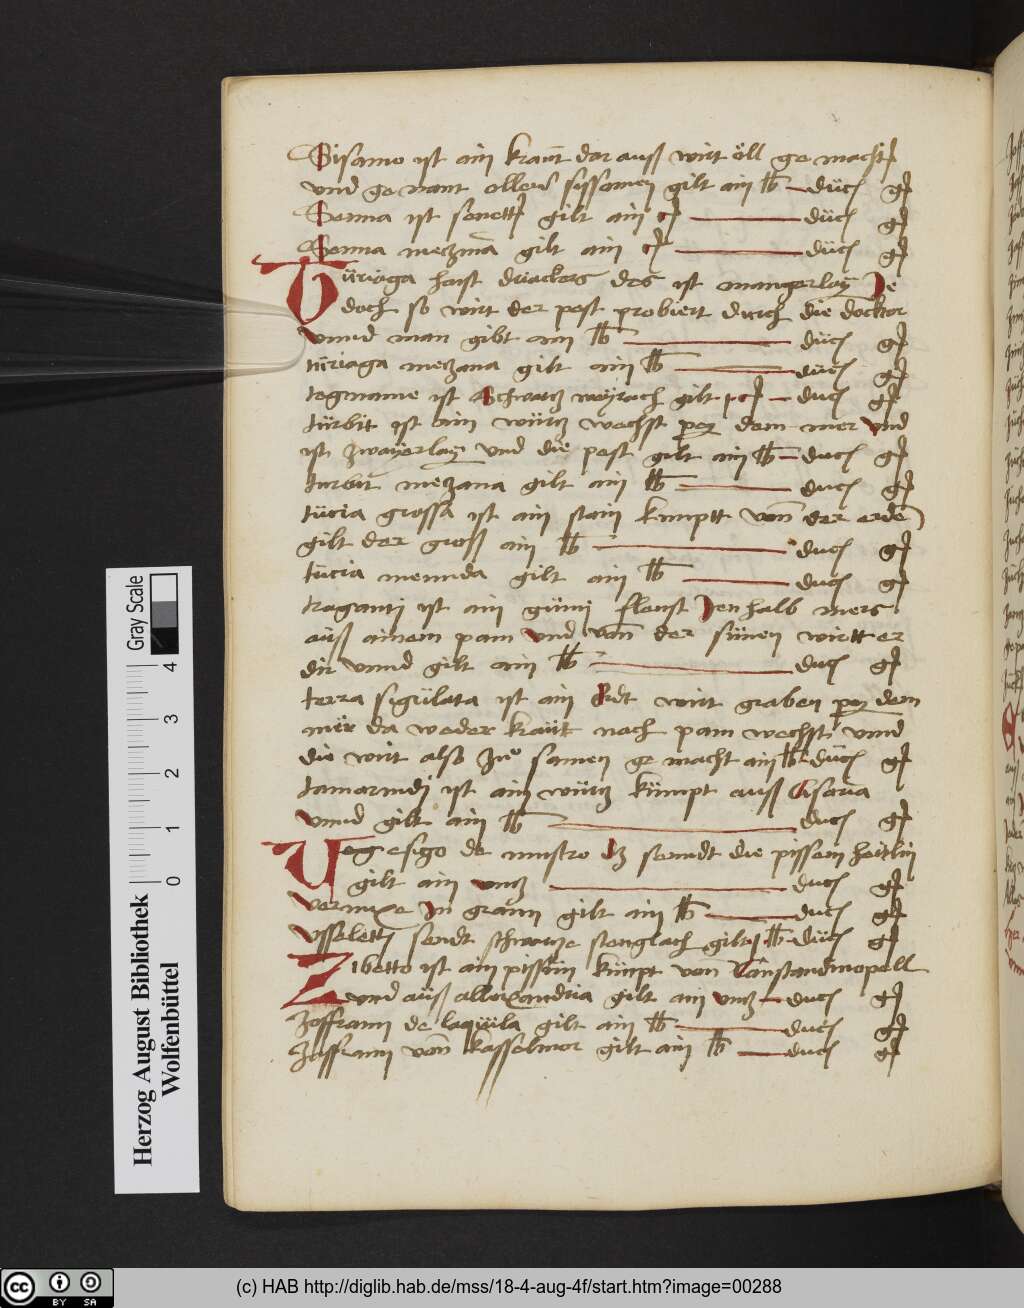 Sisamo ist ain kraut dar auss wirt öll ge macht
vnd ge nant olleum sissamen gilt ain lb duc g
Senna ist senett gilt ain c duc g
Senna mezana gilt ain c duc g
Türiaga haist driackers das ist mangerlay Je
doch so wirt der pest probiert durch die docktor
vnnd man gibt ain lb duc g
türiaga mezana gilt ain lb duc g
tegmame ist schwartz weyrach gilt 1 c duc g
türbit ist ain würtz wechst pey dem mer vnd
ist zwayerlay vnd die pest gilt ain lb duc g
turbit mezana gilt ain lb duc g
tücia grossa ist ain stain kumptt von der erden
gilt der gross ain lb duc g
tücia menuda gilt ain lb duc g
traganti ist ain gümi fleust Jenhalb mers
auss ainem pam vnd von der sünen wirtt er
dir vnnd gilt ain lb duc g
terra sigülata ist ain Erdt wirt graben pey dem
mür da weder kraüt nach pam wechst vnnd
die wirt also In samen ge macht ain lb duc g
tamarindj ist ain würtz kümpt auss Asaria
vnnd gilt ain lb duc g
Vegesigo de mustro dz senndt die pissem heitlin
gilt ain vnz duc g
vernixe In grann gilt ain lb duc g
vsseletti sendt schwartze stenglach gilt 1 lb duc g
Zibetto ist ain pissem kümpt von Constandinopell
vnd auss allexandria gilt ain vnz duc g
Zoffrann de laquila gilt ain lb duc g
Zoffrann von kasselmer gilt ain lb duc g
Herzog August Bibliothek
Wolfenbüttel
Gray Scale
0 1 2 3 4
cc BY SA
(c) HAB http://diglib.hab.de/mss/18-4-aug-4f/start.htm?image=00288